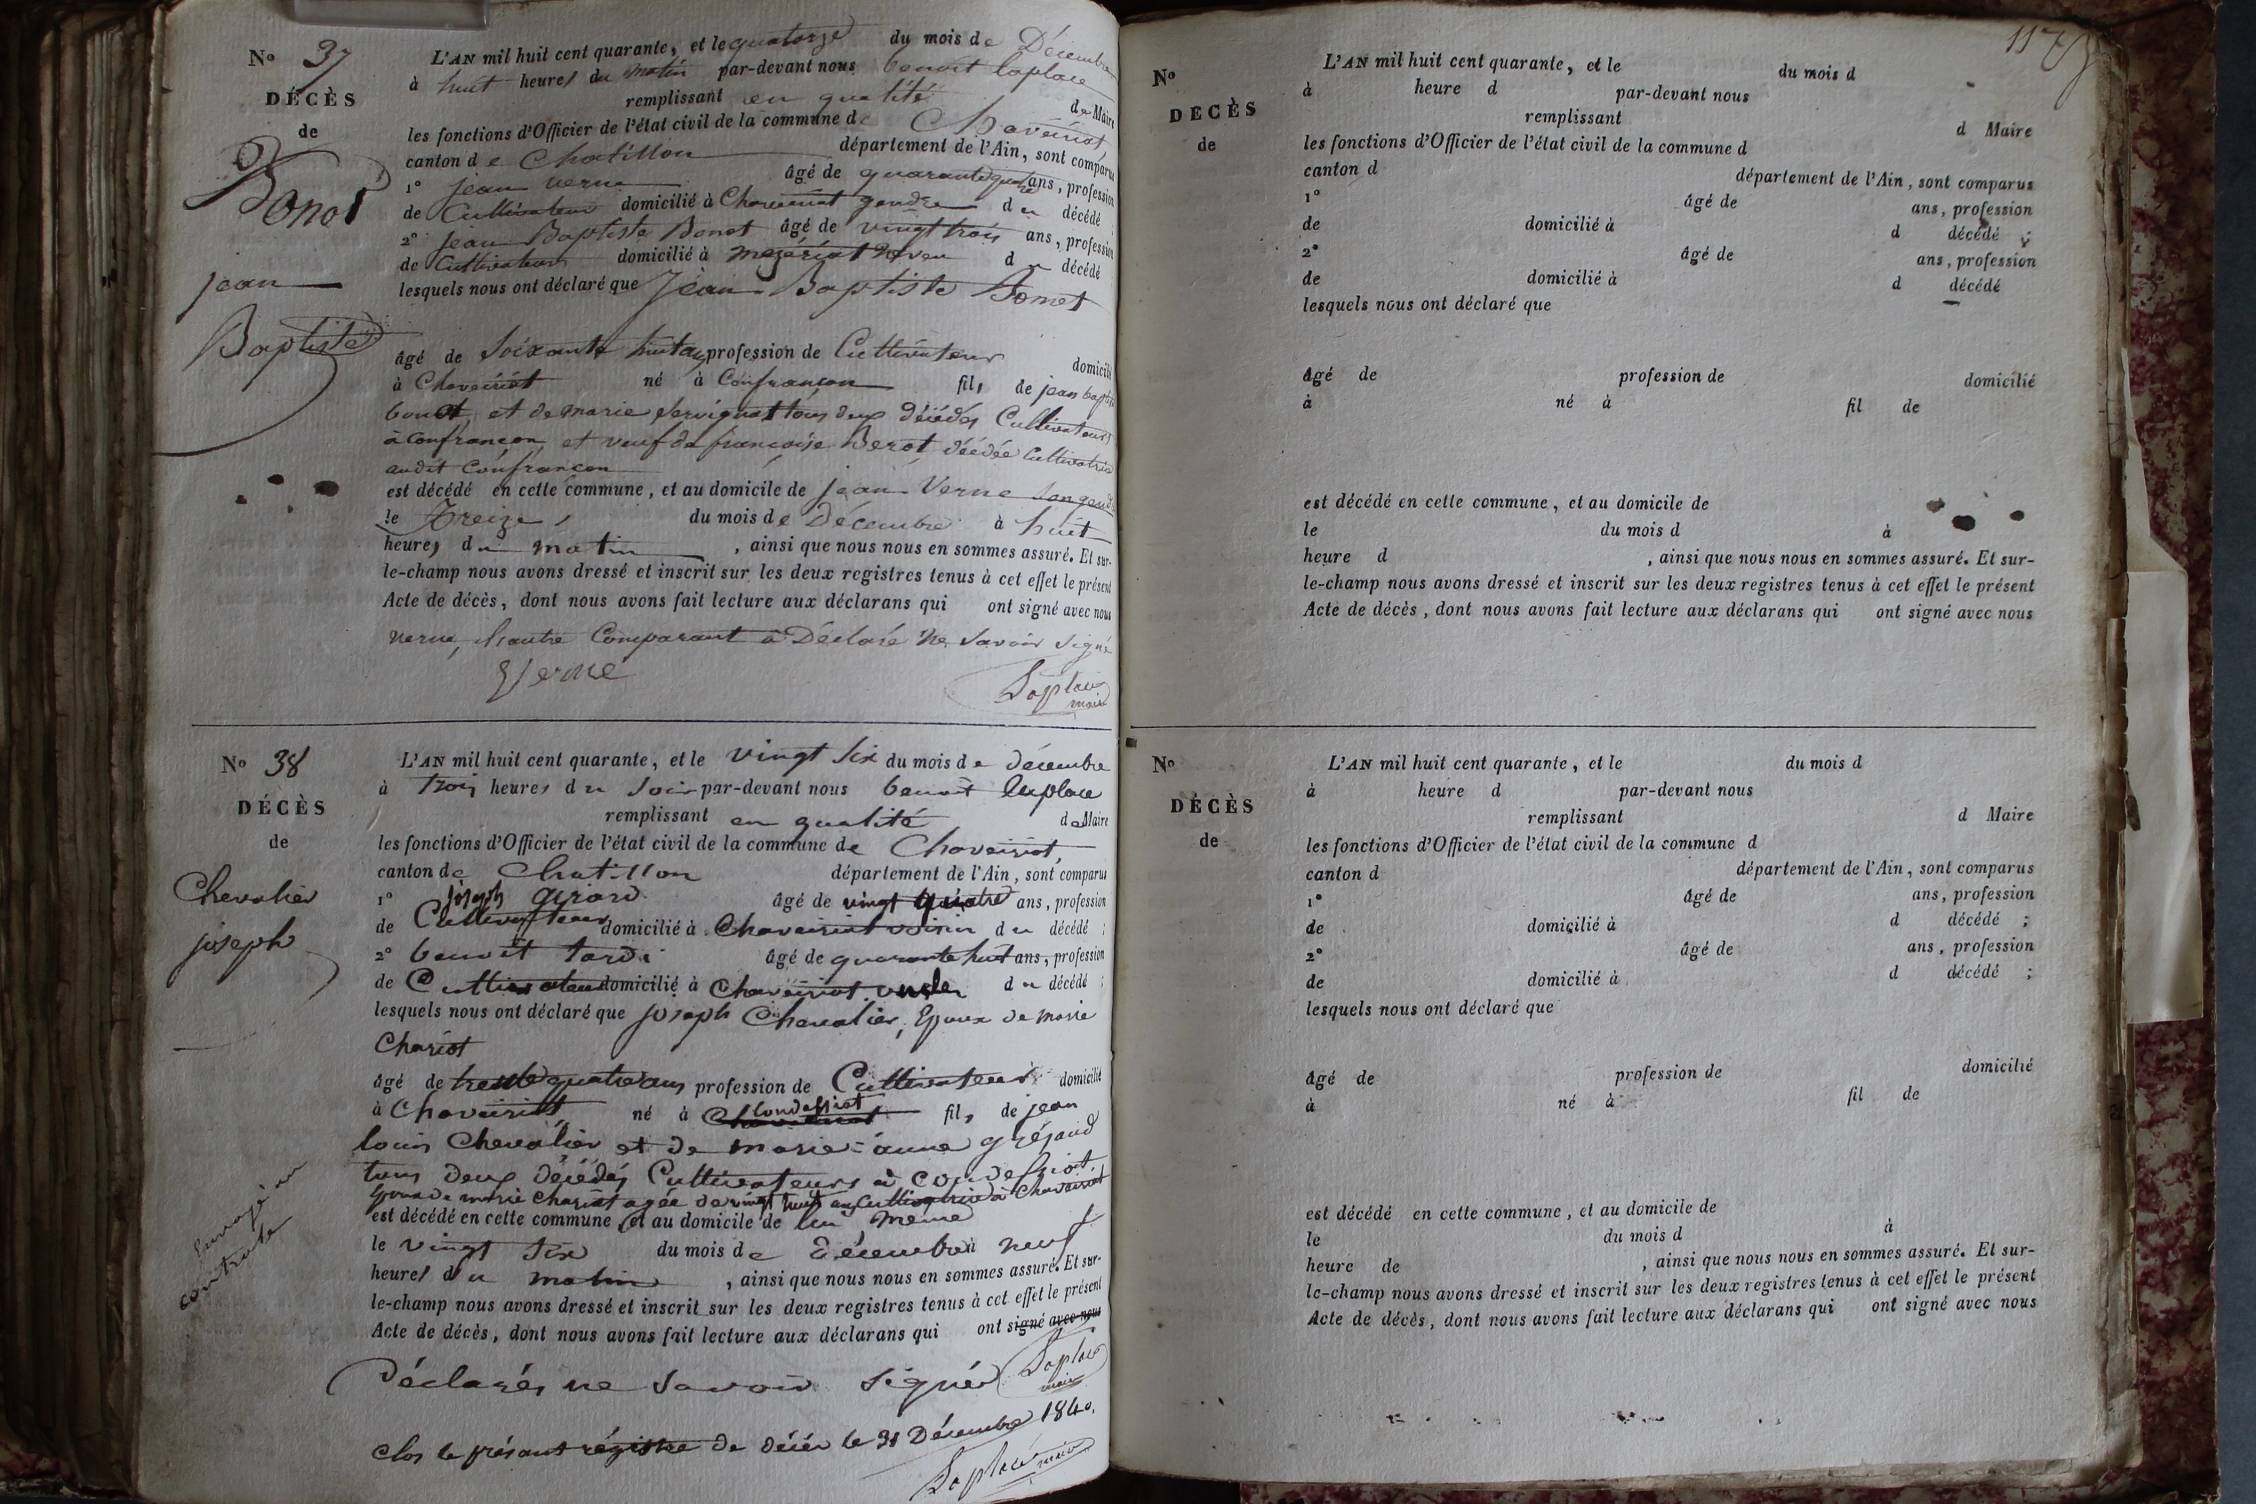 N° 37
DÉCÈS
de
Bonot
jean
Baptiste
L'AN mil huit cent quarante, et le quatorze du mois de Décembre
à huit heures du matin par-devant nous benoit laplace
remplissant en qualité de Maire
les fonctions d'Officier de l'état civil de la commune de Chaveiriat,
canton de Chatillon département de l'Ain, sont comparus
1° jean verne âgé de quarante quatre ans, profession
de Cultivateur domicilié à Chaveiriat gendre du décédé ;
2° jean Baptiste Bonot âgé de vingt trois ans, profession
de Cultivateur domicilié à mezériat neveu du décédé
lesquels nous ont déclaré que Jean Baptiste Bonot
âgé de Soixante huit ans profession de Cultivateur domicilié
à Chaveiriat né à Confrançon fils de jean baptiste
bonot et de marie Servignat tous deux décédés Cultivateurs
à Confrançon et veuf de françoise Berot décédée Cultivatrice
audit Confrançon
est décédé en cette commune, et au domicile de jean Verne son gendre
le Treize, du mois de Décembre à huit
heures du matin, ainsi que nous nous en sommes assuré. Et sur-
le-champ nous avons dressé et inscrit sur les deux registres tenus à cet effet le présent
Acte de décès, dont nous avons fait lecture aux déclarans qui ont signé avec nous
verne, l'autre Comparant a Déclaré ne savoir signé
Verne
Laplace
maire
N° 38
DÉCÈS
de
Chevalier
joseph
L'AN mil huit cent quarante, et le vingt six du mois de décembre
à trois heures du soir par-devant nous benoit laplace
remplissant en qualité de Maire
les fonctions d'Officier de l'état civil de la commune de Chaveiriat,
canton de Chatillon département de l'Ain, sont comparus
1° joseph girard âgé de vingt quatre ans, profession
de Cultivateur domicilié à Chaveiriat voisin du décédé ;
2° benoit tardi âgé de quarante huit ans, profession
de Cultivateur domicilié à Chaveiriat oncle du décédé ;
lesquels nous ont déclaré que joseph Chevalier, Epoux de marie
Chariot
âgé de trente quatre ans profession de Cultivateur domicilié
à Chaveiriat né à Condessiat fils de jean
louis Chevalier et de marie-anne
tous deux décédés Cultivateurs à Condessiat,
Epoux de marie Chariot agée de vingt huit ans Cultivatrice à Chaveiriat
est décédé en cette commune et au domicile de lui même
le vingt Six du mois de Décembre à neuf
heures du matin, ainsi que nous nous en sommes assuré. Et sur-
le-champ nous avons dressé et inscrit sur les deux registres tenus à cet effet le présent
Acte de décès, dont nous avons fait lecture aux déclarans qui ont signé avec nous
Déclarés ne savoir signés
Laplace
maire
Clos le présent régistre de décés le 31 Décembre 1840.
Laplace maire
N°
DÉCÈS
de
L'AN mil huit cent quarante, et le du mois d
à heure d par-devant nous
remplissant d Maire
les fonctions d'Officier de l'état civil de la commune d
canton d département de l'Ain, sont comparus
1° âgé de ans, profession
de domicilié à d décédé ;
2° âgé de ans, profession
de domicilié à d décédé
lesquels nous ont déclaré que
âgé de profession de domicilié
à né à fil de
est décédé en cette commune, et au domicile de
le du mois d à
heure d , ainsi que nous nous en sommes assuré. Et sur-
le-champ nous avons dressé et inscrit sur les deux registres tenus à cet effet le présent
Acte de décès, dont nous avons fait lecture aux déclarans qui ont signé avec nous
N°
DÉCÈS
de
L'AN mil huit cent quarante, et le du mois d
à heure d par-devant nous
remplissant d Maire
les fonctions d'Officier de l'état civil de la commune d
canton d département de l'Ain, sont comparus
1° âgé de ans, profession
de domicilié à d décédé ;
2° âgé de ans, profession
de domicilié à d décédé ;
lesquels nous ont déclaré que
âgé de profession de domicilié
à né à fil de
est décédé en cette commune, et au domicile de
le du mois d à
heure de , ainsi que nous nous en sommes assuré. Et sur-
le-champ nous avons dressé et inscrit sur les deux registres tenus à cet effet le présent
Acte de décès, dont nous avons fait lecture aux déclarans qui ont signé avec nous